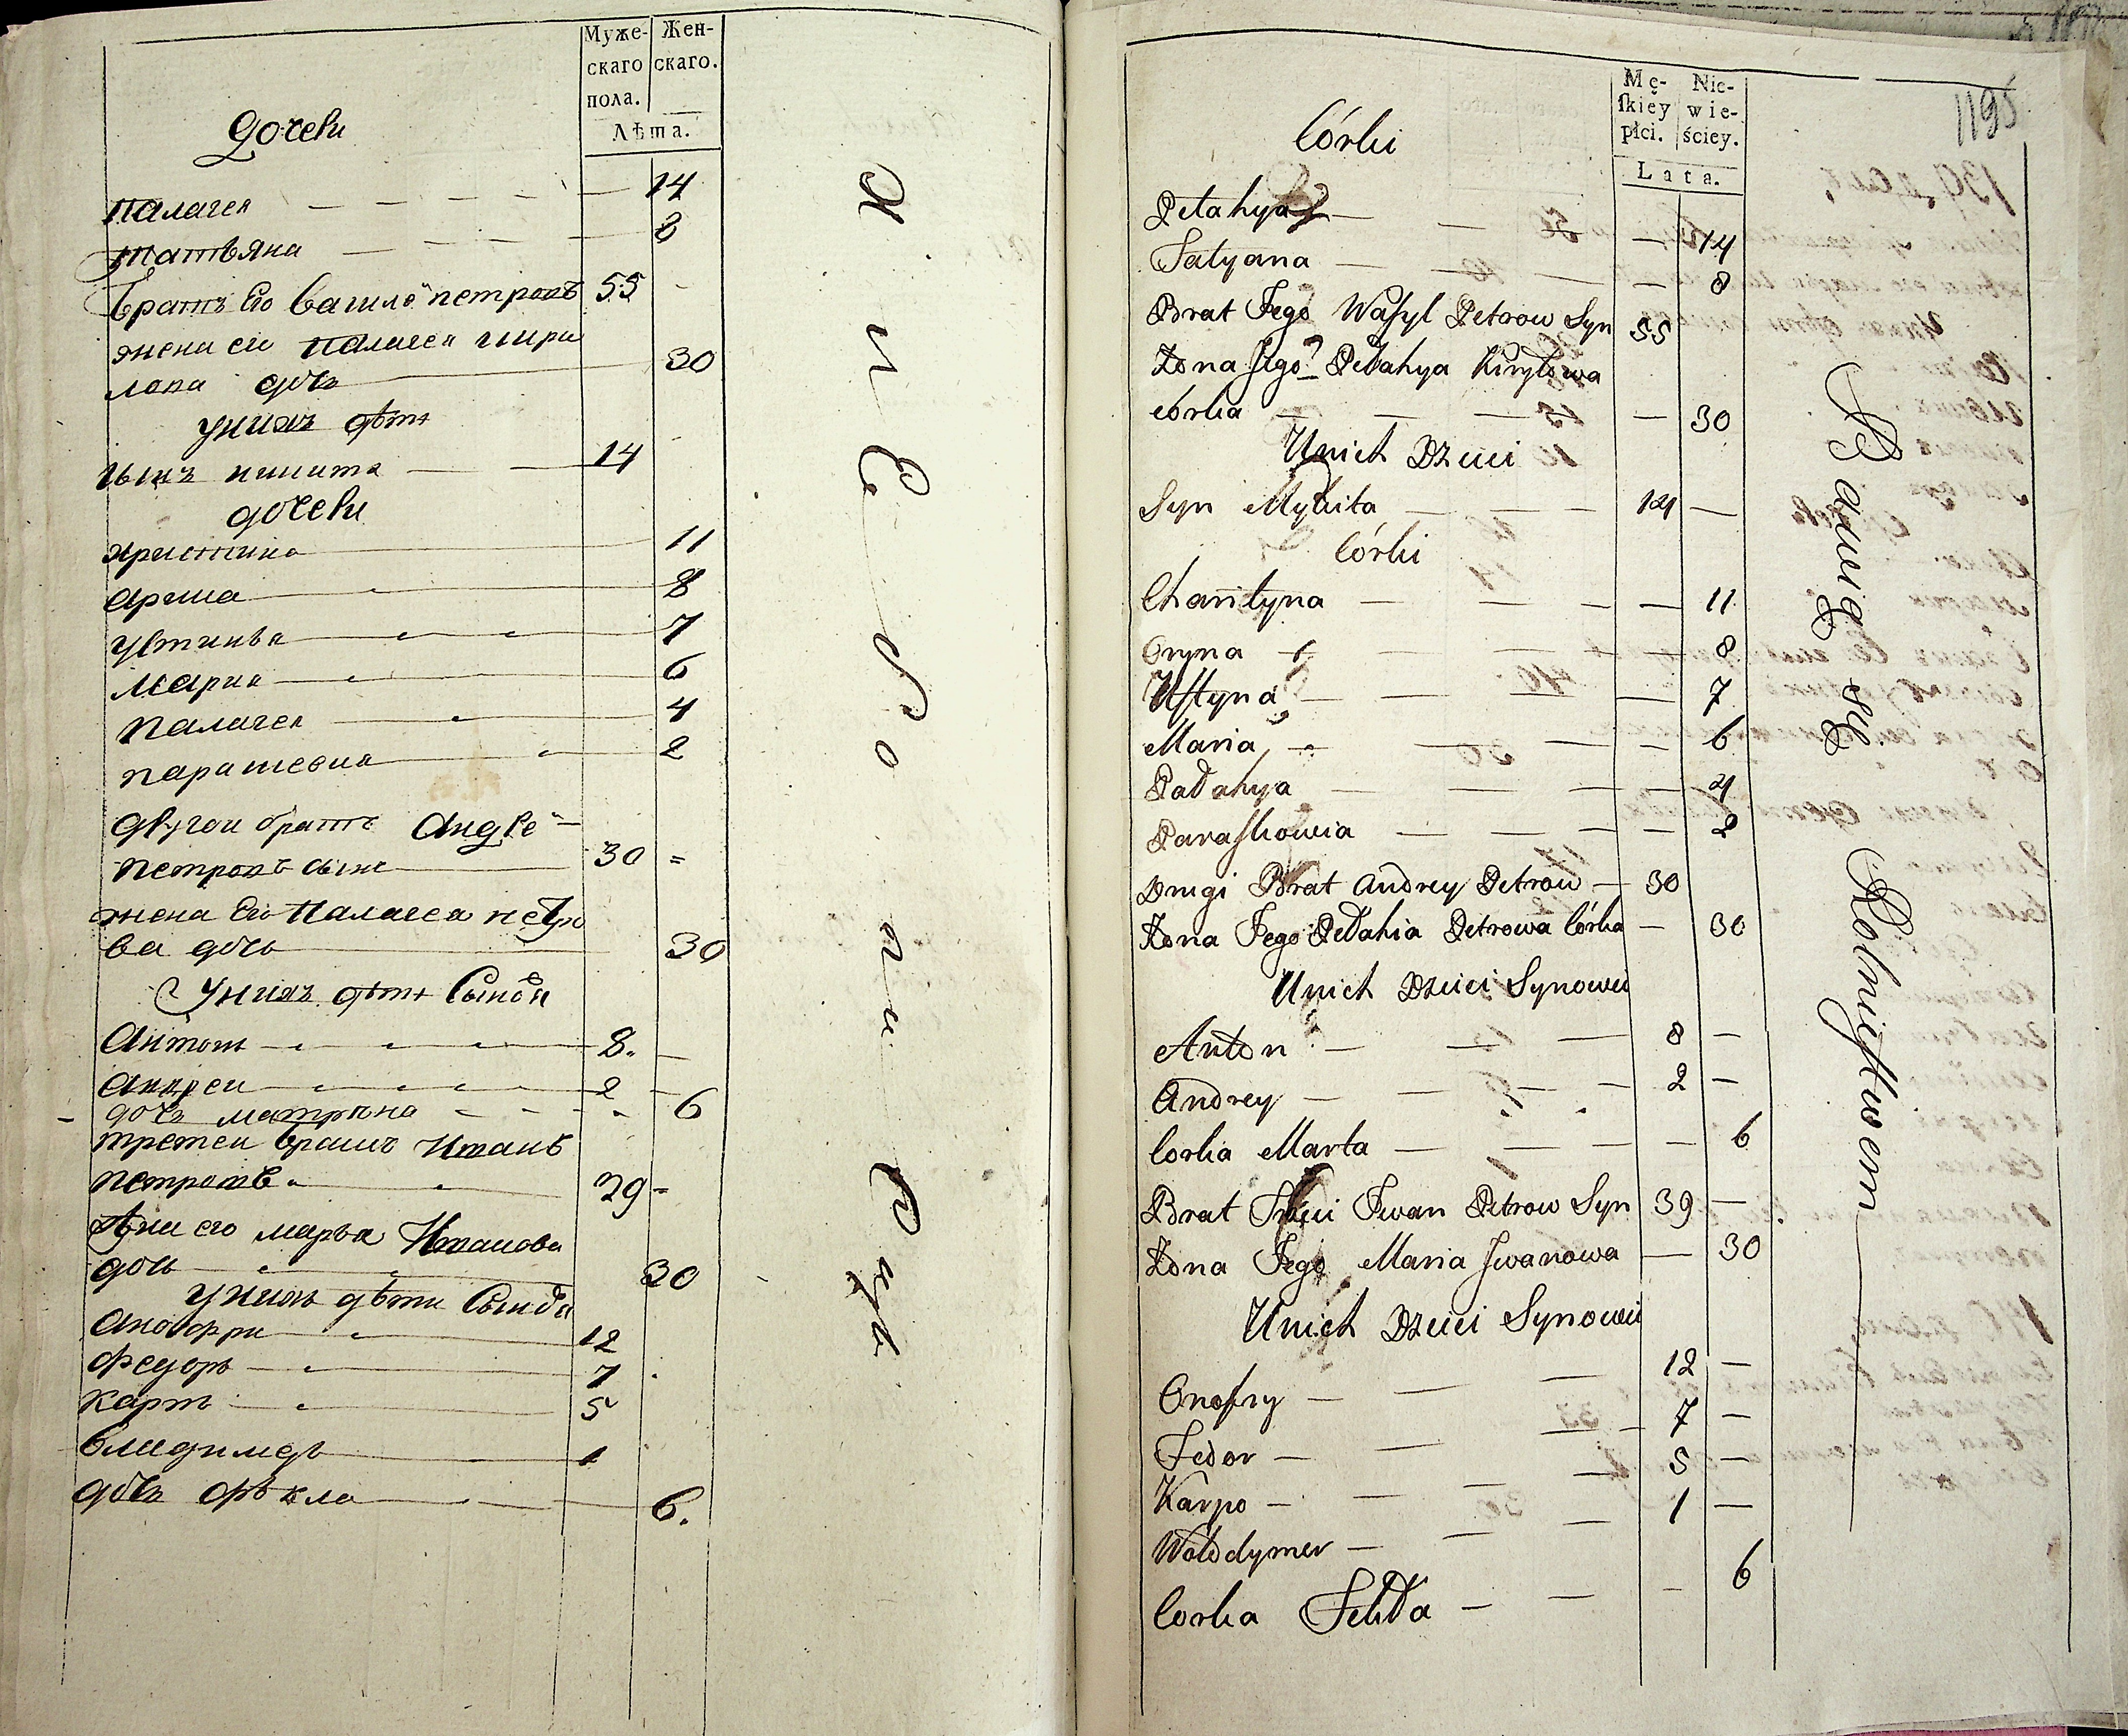 Муже-
скаго
пола.
Жен-
скаго.
Лѣта.
дочеки
палагея 14
татьяна 8
братъ Его василе петровъ 55
жена его палагея кири
лова доч 30
У нихъ дѣти
сынъ никита 14
дочеки
христина 11
арина 8
устинья 7
Мария 6
палагея 4
парасковия 2
другои братъ Андре
петровъ сынъ 30 =
жена Его палагея петро
ва дочь 30
У нихъ дѣти Сынове
Антонъ 8.
Андреи 2
дочь матрона 6
третеи братъ Иванъ
петровъ 39 =
жена его марья Иванова
дочь 30
У нихъ дѣти Сынове
Анофри 12
Федоръ 7
Карпъ 5
владимеръ 1
дочь фекла 6.
хлеборобци
1195
Mę-
ſkiéy
płci.
Nie-
wie-
ściey.
Lata.
Córki
Pelahya — 14
Tatyana — 8
Brat Jego Waſyl Petrow Syn 55
Żona Jego Pelahya Kiryłowa
córka — 30
Unich Dzieci
Syn Mykita 14 —
Córki
Chariłyna — 11
Oryna — 8
Uſtyna — 7
Maria — 6
Pałahya — 4
Paraſkowia — 2
Drugi Brat Andrey Petrow — 30
Żona Jego Pełahia Petrowa Córka — 30
Unich Dzieci Synowie
Anton 8 —
Andrey 2 —
Corka Marta — 6
Brat Trzeci Iwan Petrow Syn 39 —
Żona Jego Maria Iwanowa — 30
Unich Dzieci Synowie
Onofry 12 —
Fedor 7 —
Karpo 5 —
Wołodymer 1 —
Corka Fekła — 6
Bawią się Rolnictwem